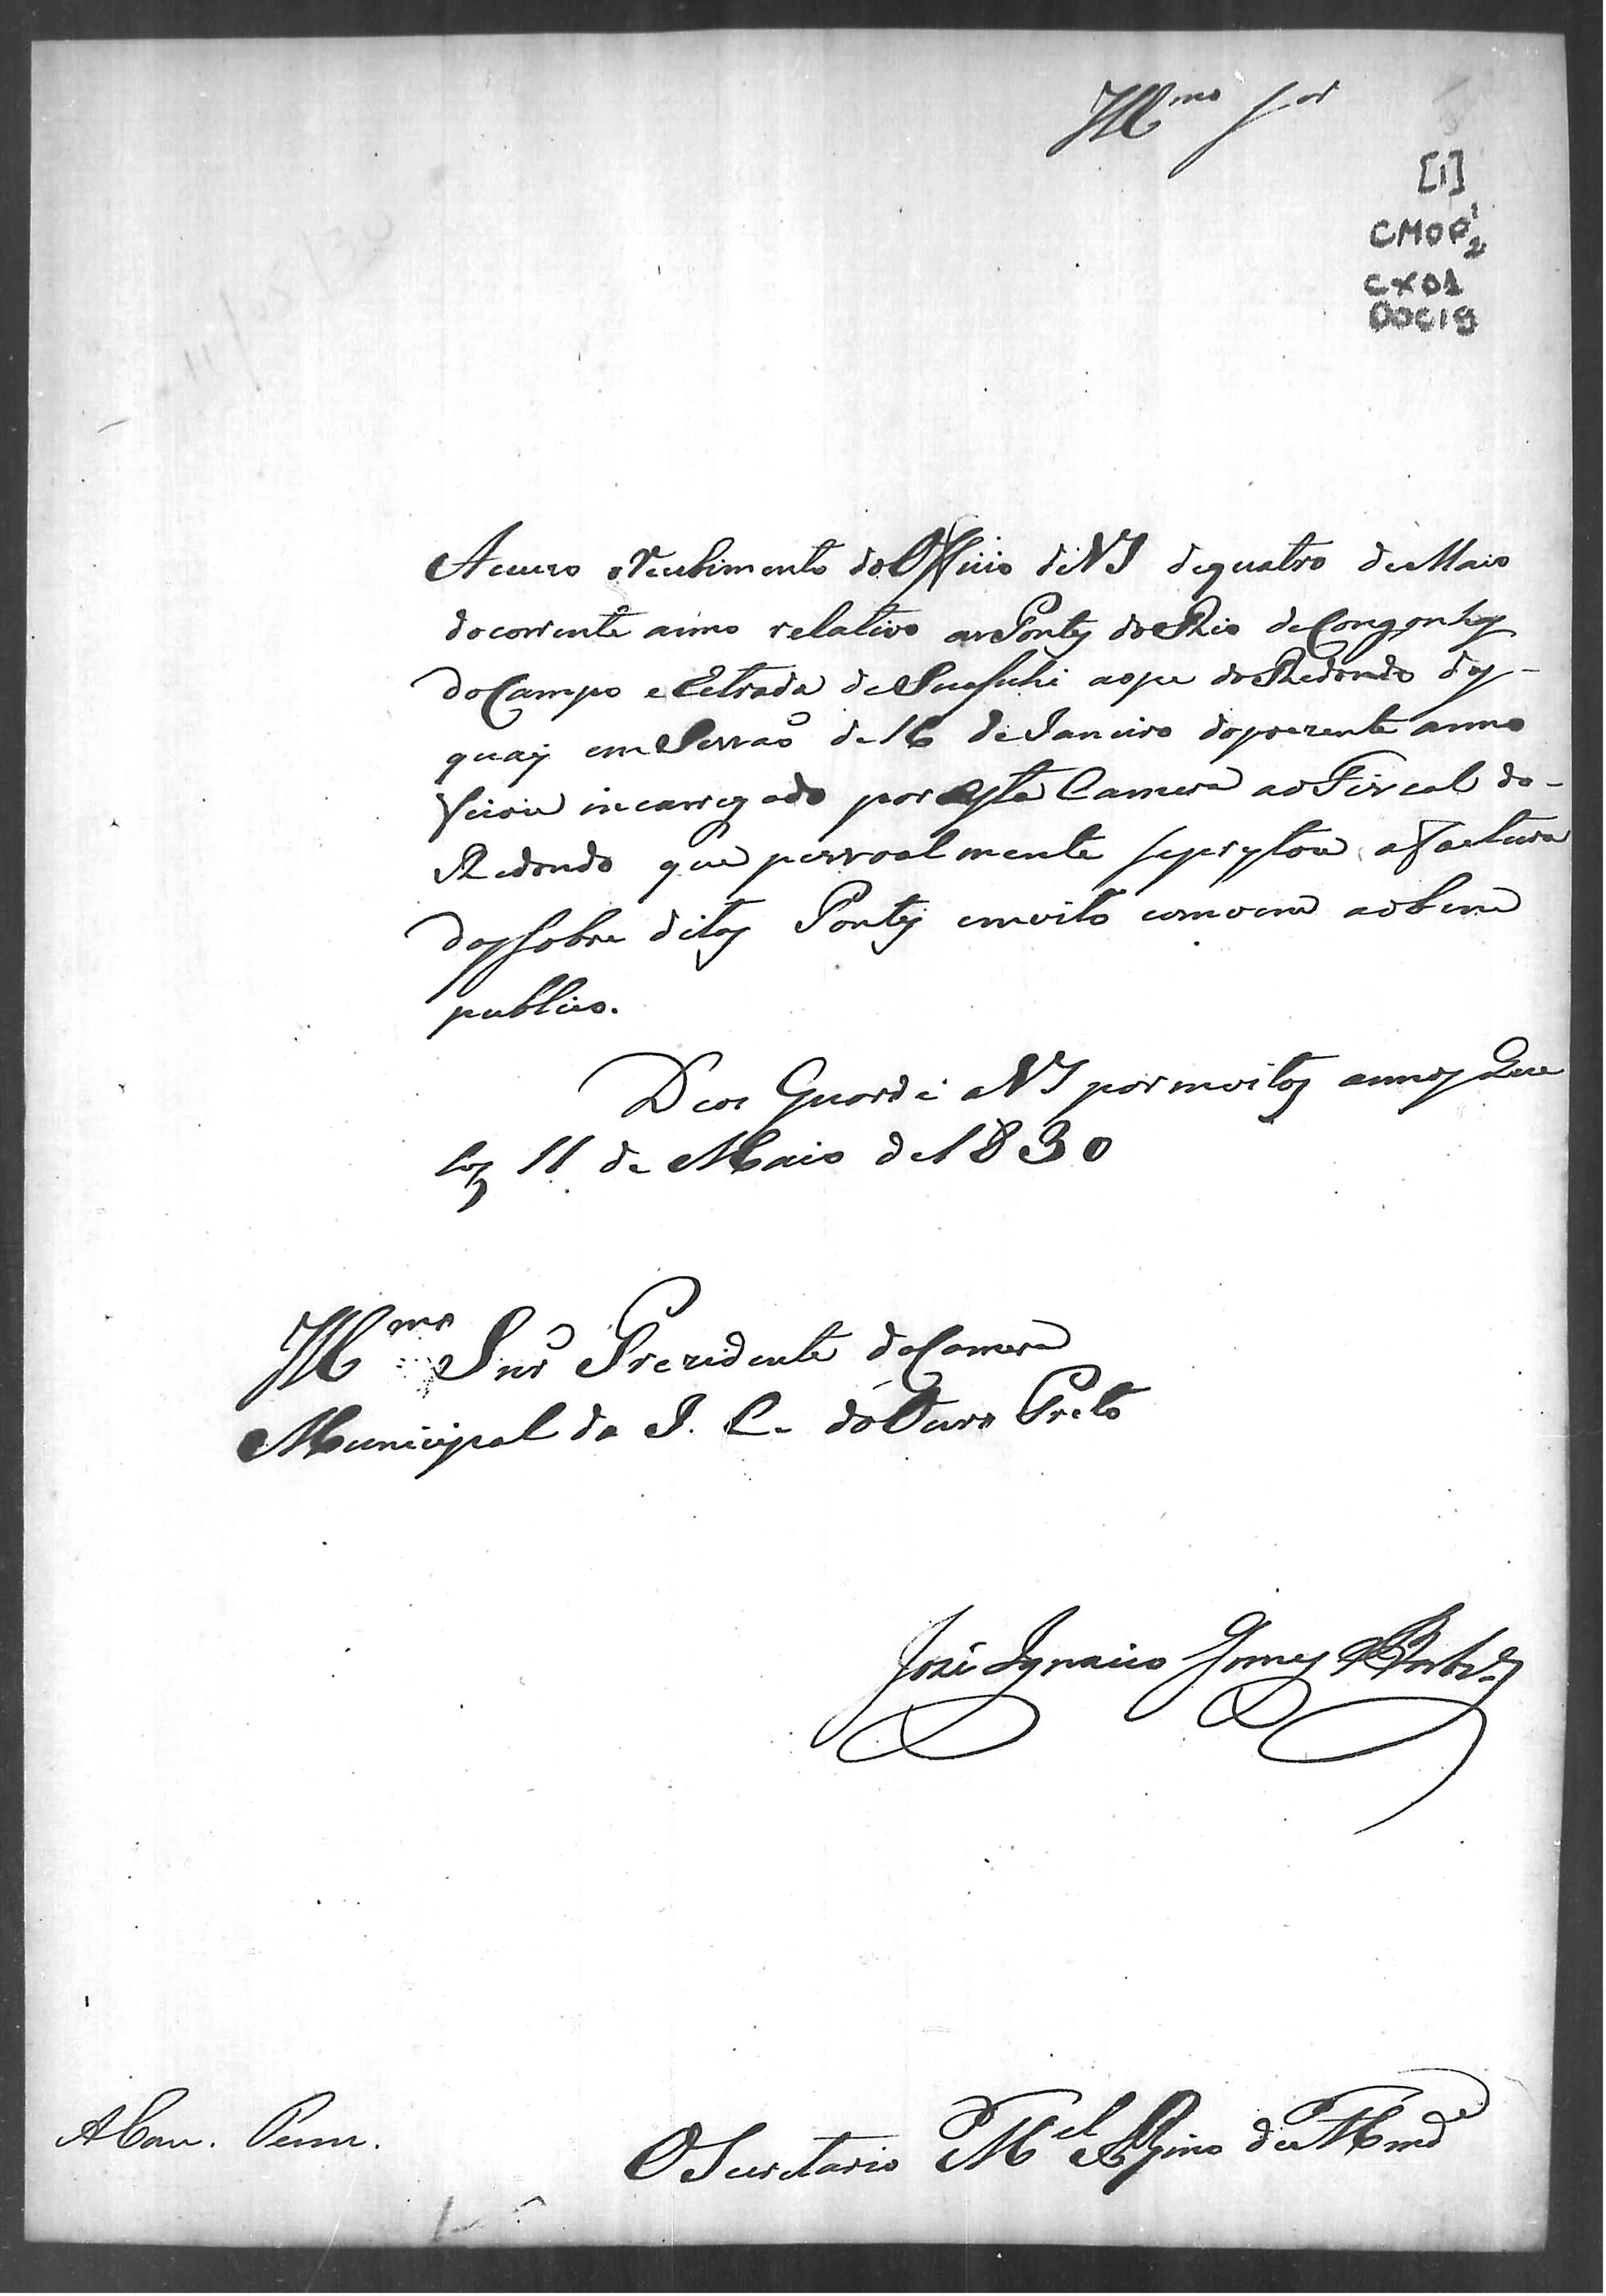 Illmo Snr
[1]
CMOP 1/2
CX01
DOC19
Acuzo o recebimento do Officio de VS de quatro de Maio
do corrente anno relativo as Pontes do Rio de Congonhas
do Campo e Estrada de Suassuhi ao pe do Redondo das
quaes em Sessaõ de 16 de Janeiro do prezente anno
ficou incarregado por esta Camera ao Fiscal do
Redondo que pessoalmente se prestou a factura
das sobre ditas Pontes em oito como em ao bem
publico.
Deos Guarde a VS por muitos annos Que
luz 11 de Maio de 1830
Illmo Snr Prezidente da Camera
Municipal da I. C. do Ouro Preto
José Ignacio Gomes Barboza
O Secretario Mel